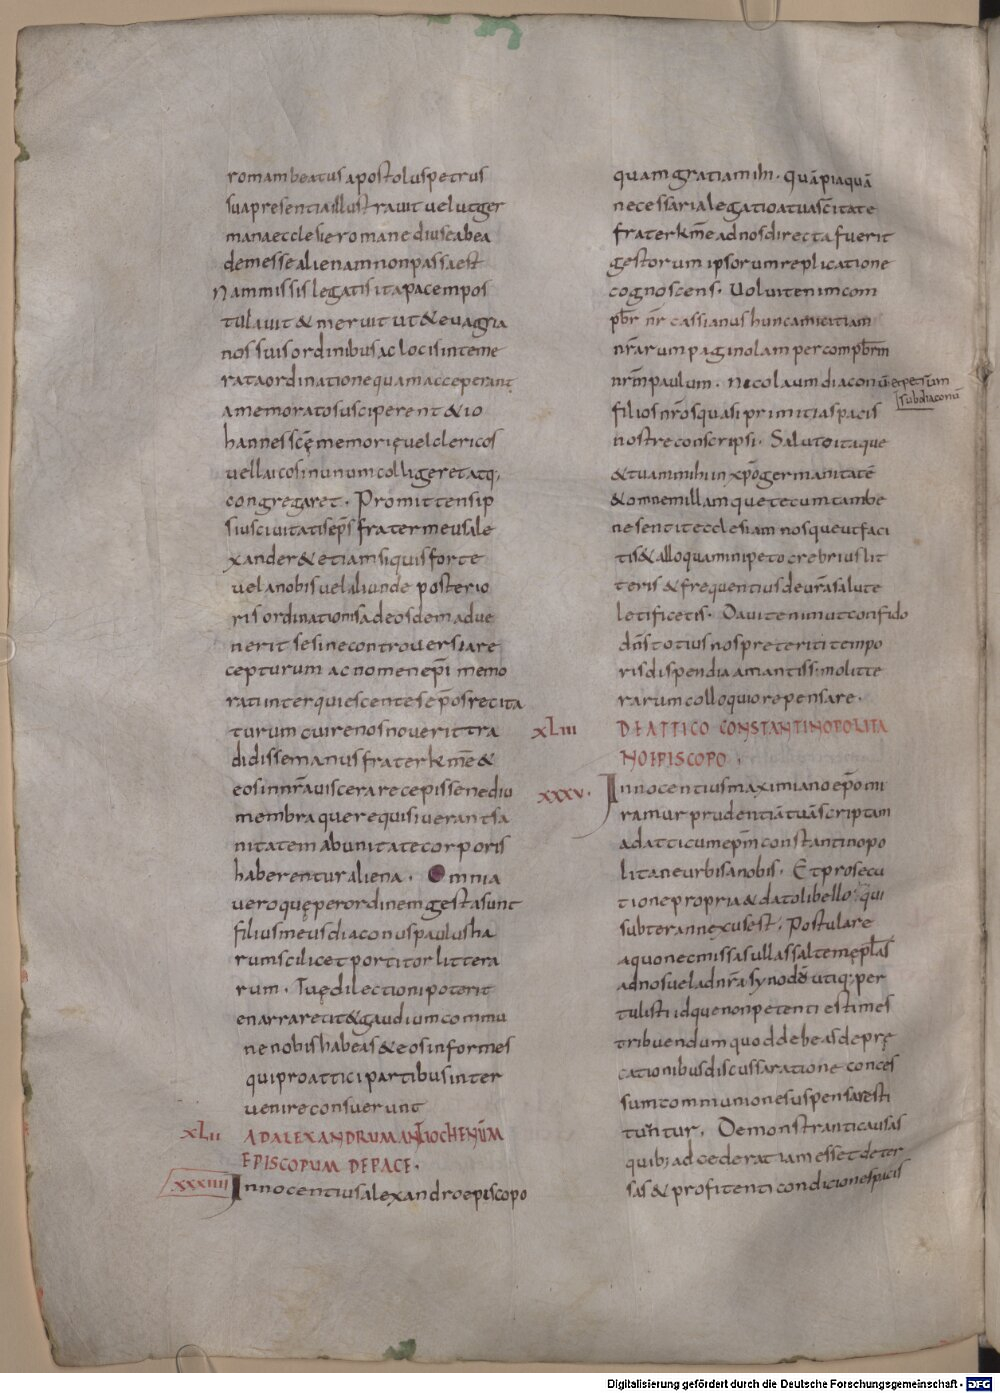 romam beatus apostolus petrus
sua presentia illustravit velut ger
mana ecclesie romane diu se ab ea
dem esse alienam non passa est
Nam missis legatis ita pacem pos
tulavit & meruit ut & evagria
nos suis ordinibus ac locis inteme
rata ordinatione quam acceperant
a memorato susciperent & io
hannes scę memorię vel clericos
vel laicos in unum colligeret atq;
congregaret. Promittens ip
sius civitatis ep̄s frater meus ale
xander & etiam si quis forte
vel a nobis vel aliunde posterio
ris ordinationis ad eosdem adve
nerit se sine controversia re
cepturum ac nomen ep̄i memo
rati inter quiescentes ep̄os recita
turum cui re nos noverit tra
didisse manus frater k̄me &
eos in nr̄a viscera recepisse ne diu
membra que requisiverant sa
nitatem ab unitate corporis
haberentur aliena. Omnia
vero quę per ordinem gesta sunt
filius meus diaconus paulus ha
rum scilicet portitor littera
rum. Tuę dilectioni poterit
enarrare ut & gaudium commu
ne nobis habeas & eos informes
qui pro attici partibus inter
venire consuerunt
XLII AD ALEXANDRUM ANTIOCHENŪM
EPISCOPUM DE PACE.
XXXIIII Innocentius alexandro episcopo
quam gratia mihi. Quā pia quā
necessaria legatio a tua sc̄itate
frater k̄me ad nos directa fuerit
gestorum ipsorum replicatione
cognoscens. Voluit enim com
pb̄r nr̄ cassianus hunc amicitiam
nr̄arum paginolam per compb̄rm
nr̄m paulum. nicolaum diaconū et petrum
subdiaconū
filios nr̄os quasi primitias pacis
nostre conscripsi. Saluto itaque
& tuam mihi in xp̄o germanitatē
& omnem illam que tecum tam be
ne sentit ecclesiam nosque ut faci
tis & alloquamini peto crebrius lit
teris & frequentius de vr̄a salute
letificetis. Davit enim ut confido
dn̄s totius nos preteriti tempo
ris dispendia amantissimo litte
rarum colloquio ropensare.
XLIII DE ATTICO CONSTANTINOPOLITA
NO IPISCOPO.
XXXV. Innocentius maximiano ep̄o mi
ramur prudentiā tuā scriptam
ad atticum ep̄m constantinopo
litane urbis a nobis. Et prosecu
tione propria & dato libello qui
subter annexus est. Postulare
a quo nec missas ullas saltem ep̄las
ad nos vel ad nr̄a synodō utiq; per
tulisti idque non petenti estimes
tribuendum quod debeas depre
cationibus discussa ratione conces
sum communione suspensa resti
tuūntur. Demonstranti causas
quib; ad cederat iam esse t deter
sas & profitenti condiciones pacis
Digitalisierung gefördert durch die Deutsche Forschungsgemeinschaft - DFG